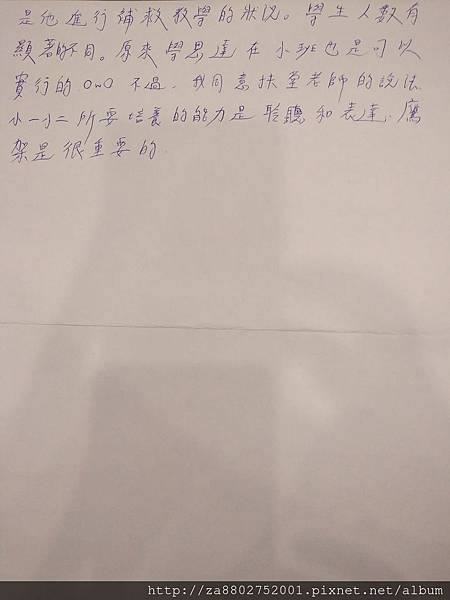 是他進行補救教學的狀況。學生人數有
顯著的不同。原來學思達在小班也是可以
實行的OwO 不過,我同意扶堂老師的說法
小一小二所要培養的能力是聆聽和表達.鷹
架是很重要的
http://za8802752001.pixnet.net/album